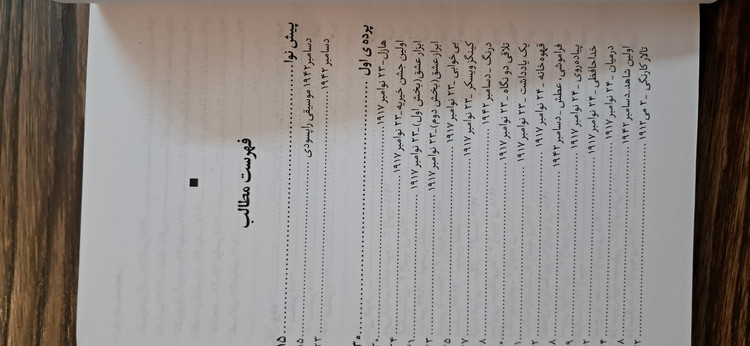 فهرست مطالب
پیش نوا ........ ۱۵
دسامبر ۱۹۴۲ موسیقی راپسودی ........ ۱۵
دسامبر ۱۹۴۲ ........ ۲۳
پرده ی اول ........ ۳۰
هازل-۲۳ نوامبر ۱۹۱۷ ........
اولین جشن خیریه-۲۳ نوامبر ۱۹۱۷ ........
ابزار عشق (بخش اول)-۲۳ نوامبر ۱۹۱۷ ........
ابزار عشق (بخش دوم)-۲۳ نوامبر ۱۹۱۷ ........
بی‌خوابی -۲۳ نوامبر ۱۹۱۷ ........
کینگز ویسکر -۲۳ نوامبر ۱۹۱۷ ........
درنگ - دسامبر ۱۹۴۲ ........
تلاقی دو نگاه -۲۳ نوامبر ۱۹۱۷ ........
یک یادداشت -۲۳ نوامبر ۱۹۱۷ ........
قهوه خانه -۲۴ نوامبر ۱۹۱۷ ........
فراموشی، عطش - دسامبر ۱۹۴۲ ........
پیاده‌روی -۲۴ نوامبر ۱۹۱۷ ........
خداحافظی -۲۴ نوامبر ۱۹۱۷ ........
درمیان -۲۴ نوامبر ۱۹۱۷ ........
اولین شاهد-دسامبر ۱۹۴۲ ........
تالار کارنگی -۲ می ۱۹۱۲ ........